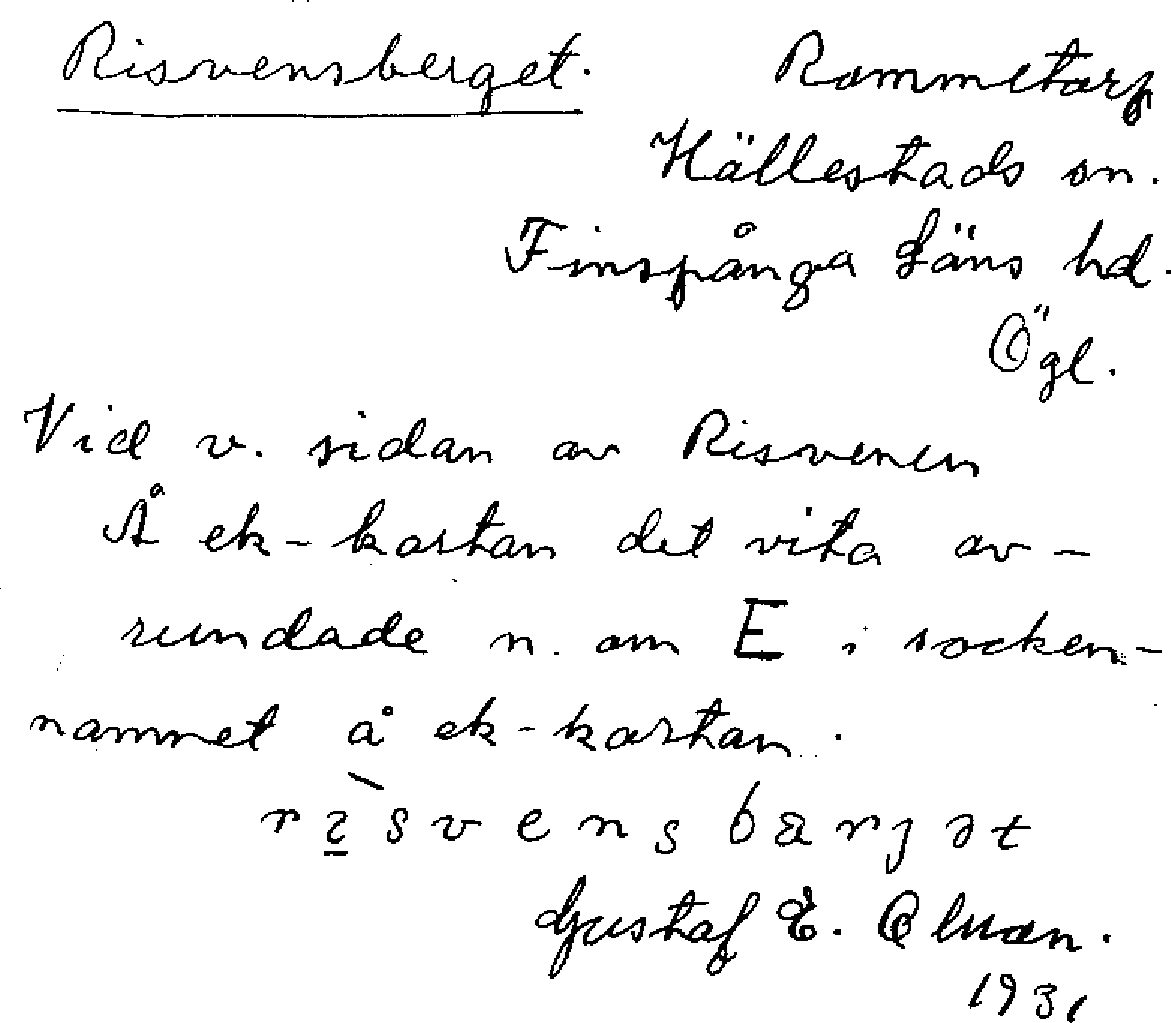 Risvensberget. Rammetorp
Hällestads sn.
Finspånga Läns hd.
Ögl.
Vid v. sidan av Risvenen
Å ek-kartan det vita av-
rundade n. om E i socken-
namnet å ek-kartan.
Gustaf E.
1931